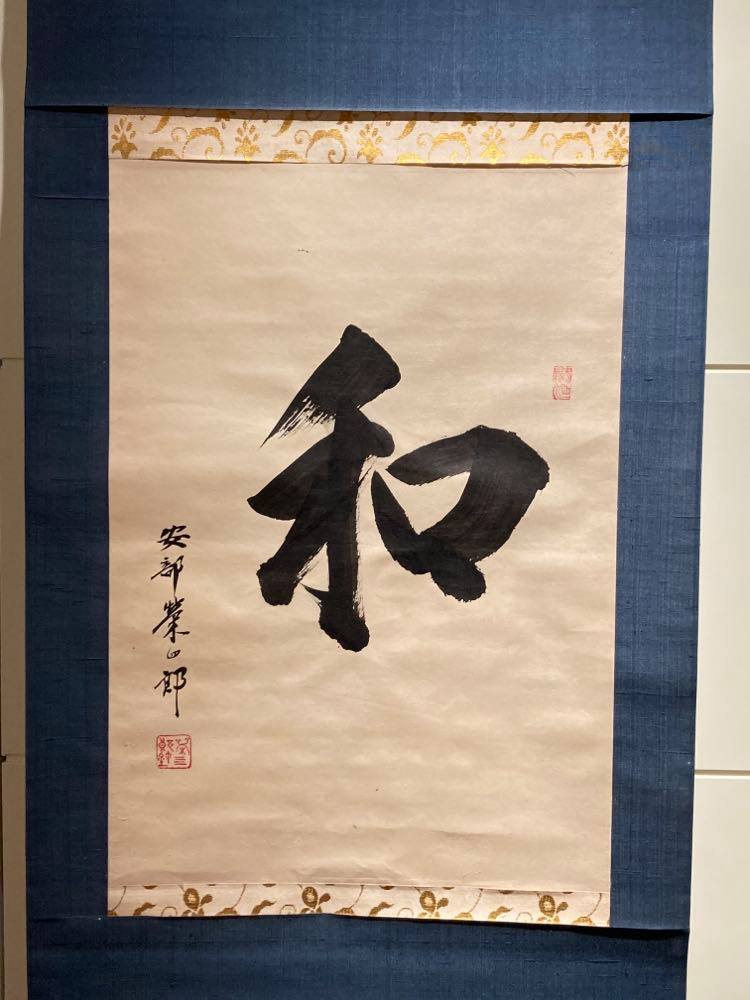 和
安部榮四郎